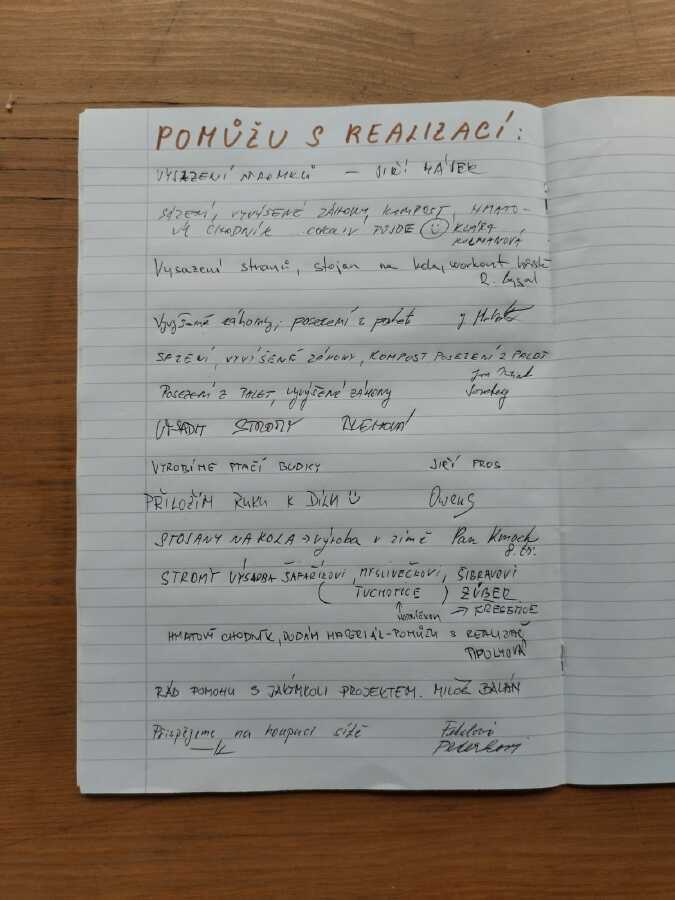 POMŮŽU S REALIZACÍ:
VYSAZENÍ – JIŘÍ HÁJEK
SÁZENÍ, VYVÝŠENÉ ZÁHONY, KOMPOST, HMATO-
VÝ CHODNÍK COKOLIV PŮJDE KLÁRA
KULMANOVÁ
Vysazení stromů, stojan na kola, workout hřiště
Vyvýšené záhony, posezení z palet J.
SÁZENÍ, VYVÝŠENÉ ZÁHONY, KOMPOST POSEZENÍ Z PALET
POSEZENÍ Z PALET, VYVÝŠENÉ ZÁHONY
VYSADIT STROMY
VYROBÍME PTAČÍ BUDKY JIŘÍ FROS
PŘILOŽÍM RUKU K DÍLU
STOJANY NA KOLA → výroba v zimě Pan Kmoch
8. tř.
STROMY VÝSADBA ŠAFAŘÍKOVI, MYSLIVEČKOVI, ŠIBRAVOVI
(TUCHOTICE) ZUBER
→ KREGETICE
HMATOVÝ CHODNÍK, DODÁM MATERIÁL - POMŮŽU S REALIZACÍ
RÁD POMOHU S JAKÝMKOLI PROJEKTEM. MILOŠ BALÁN
Přispějeme na houpací sítě